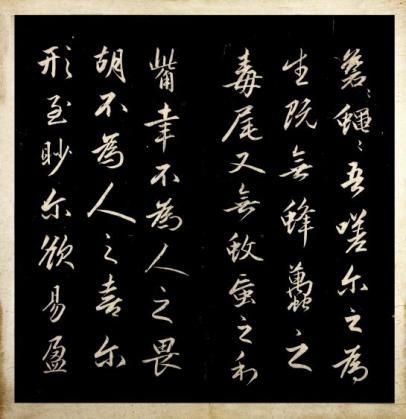 蒼〻蠅〻吾嗟尔之為
生既無蜂蠆之
毒尾又無蚊䖟之利
觜幸不為人之畏
胡不為人之喜尔
形至眇尔欲易盈